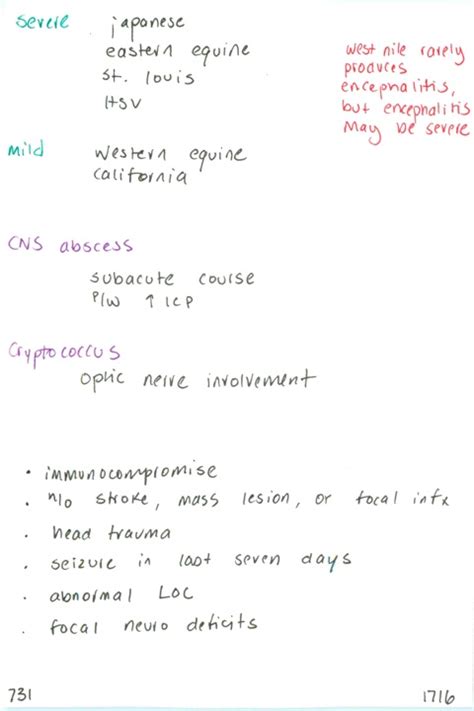 severe japanese
eastern equine
st. louis
HSV
west nile rarely
produces
encephalitis,
but encephalitis
may be severe
mild western equine
california
CNS abscess
subacute course
P/W ↑ ICP
Cryptococcus
optic nerve involvement
• immunocompromise
• h/o stroke, mass lesion, or focal infx
• head trauma
• seizure in last seven days
• abnormal LOC
• focal neuro deficits
731 1716